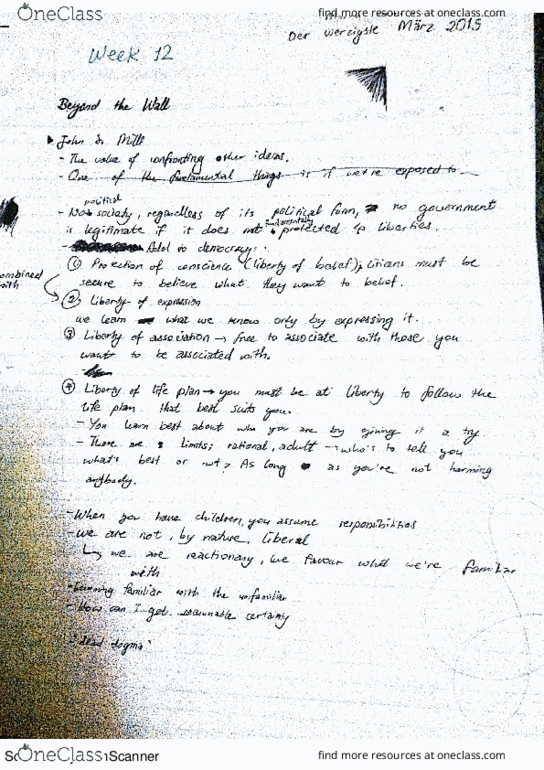 OneClass
find more resources at oneclass.com
Der vierzigste März 2015
Week 12
Beyond the Wall
John S. Mill
- The value of confronting other ideas.
- One of the fundamental things is if we're exposed to
political
- No society, regardless of its political form, no government
fundamentally
is legitimate if it does not protected 4 liberties.
in democracy:
① Protection of conscience (liberty of belief); citizens must be
secure to believe what they want to belief.
combined
with
② Liberty of expression
we learn what we know only by expressing it.
③ Liberty of association → free to associate with those you
want to be associated with.
④ Liberty of life plan → you must be at liberty to follow the
life plan that best suits you.
- You learn best about who you are by giving it a try
- There are 2 limits; rational, adult → who's to tell you
what's best or not? As long as you're not harming
anybody.
- When you have children, you assume responsibilities
- we are not, by nature, liberal
↳ we are reactionary, we favour what we're familiar
with
familiar with the unfamiliar
- How can I get reasonable certainty
"dead dogma"
OneClass
Scanner
find more resources at oneclass.com